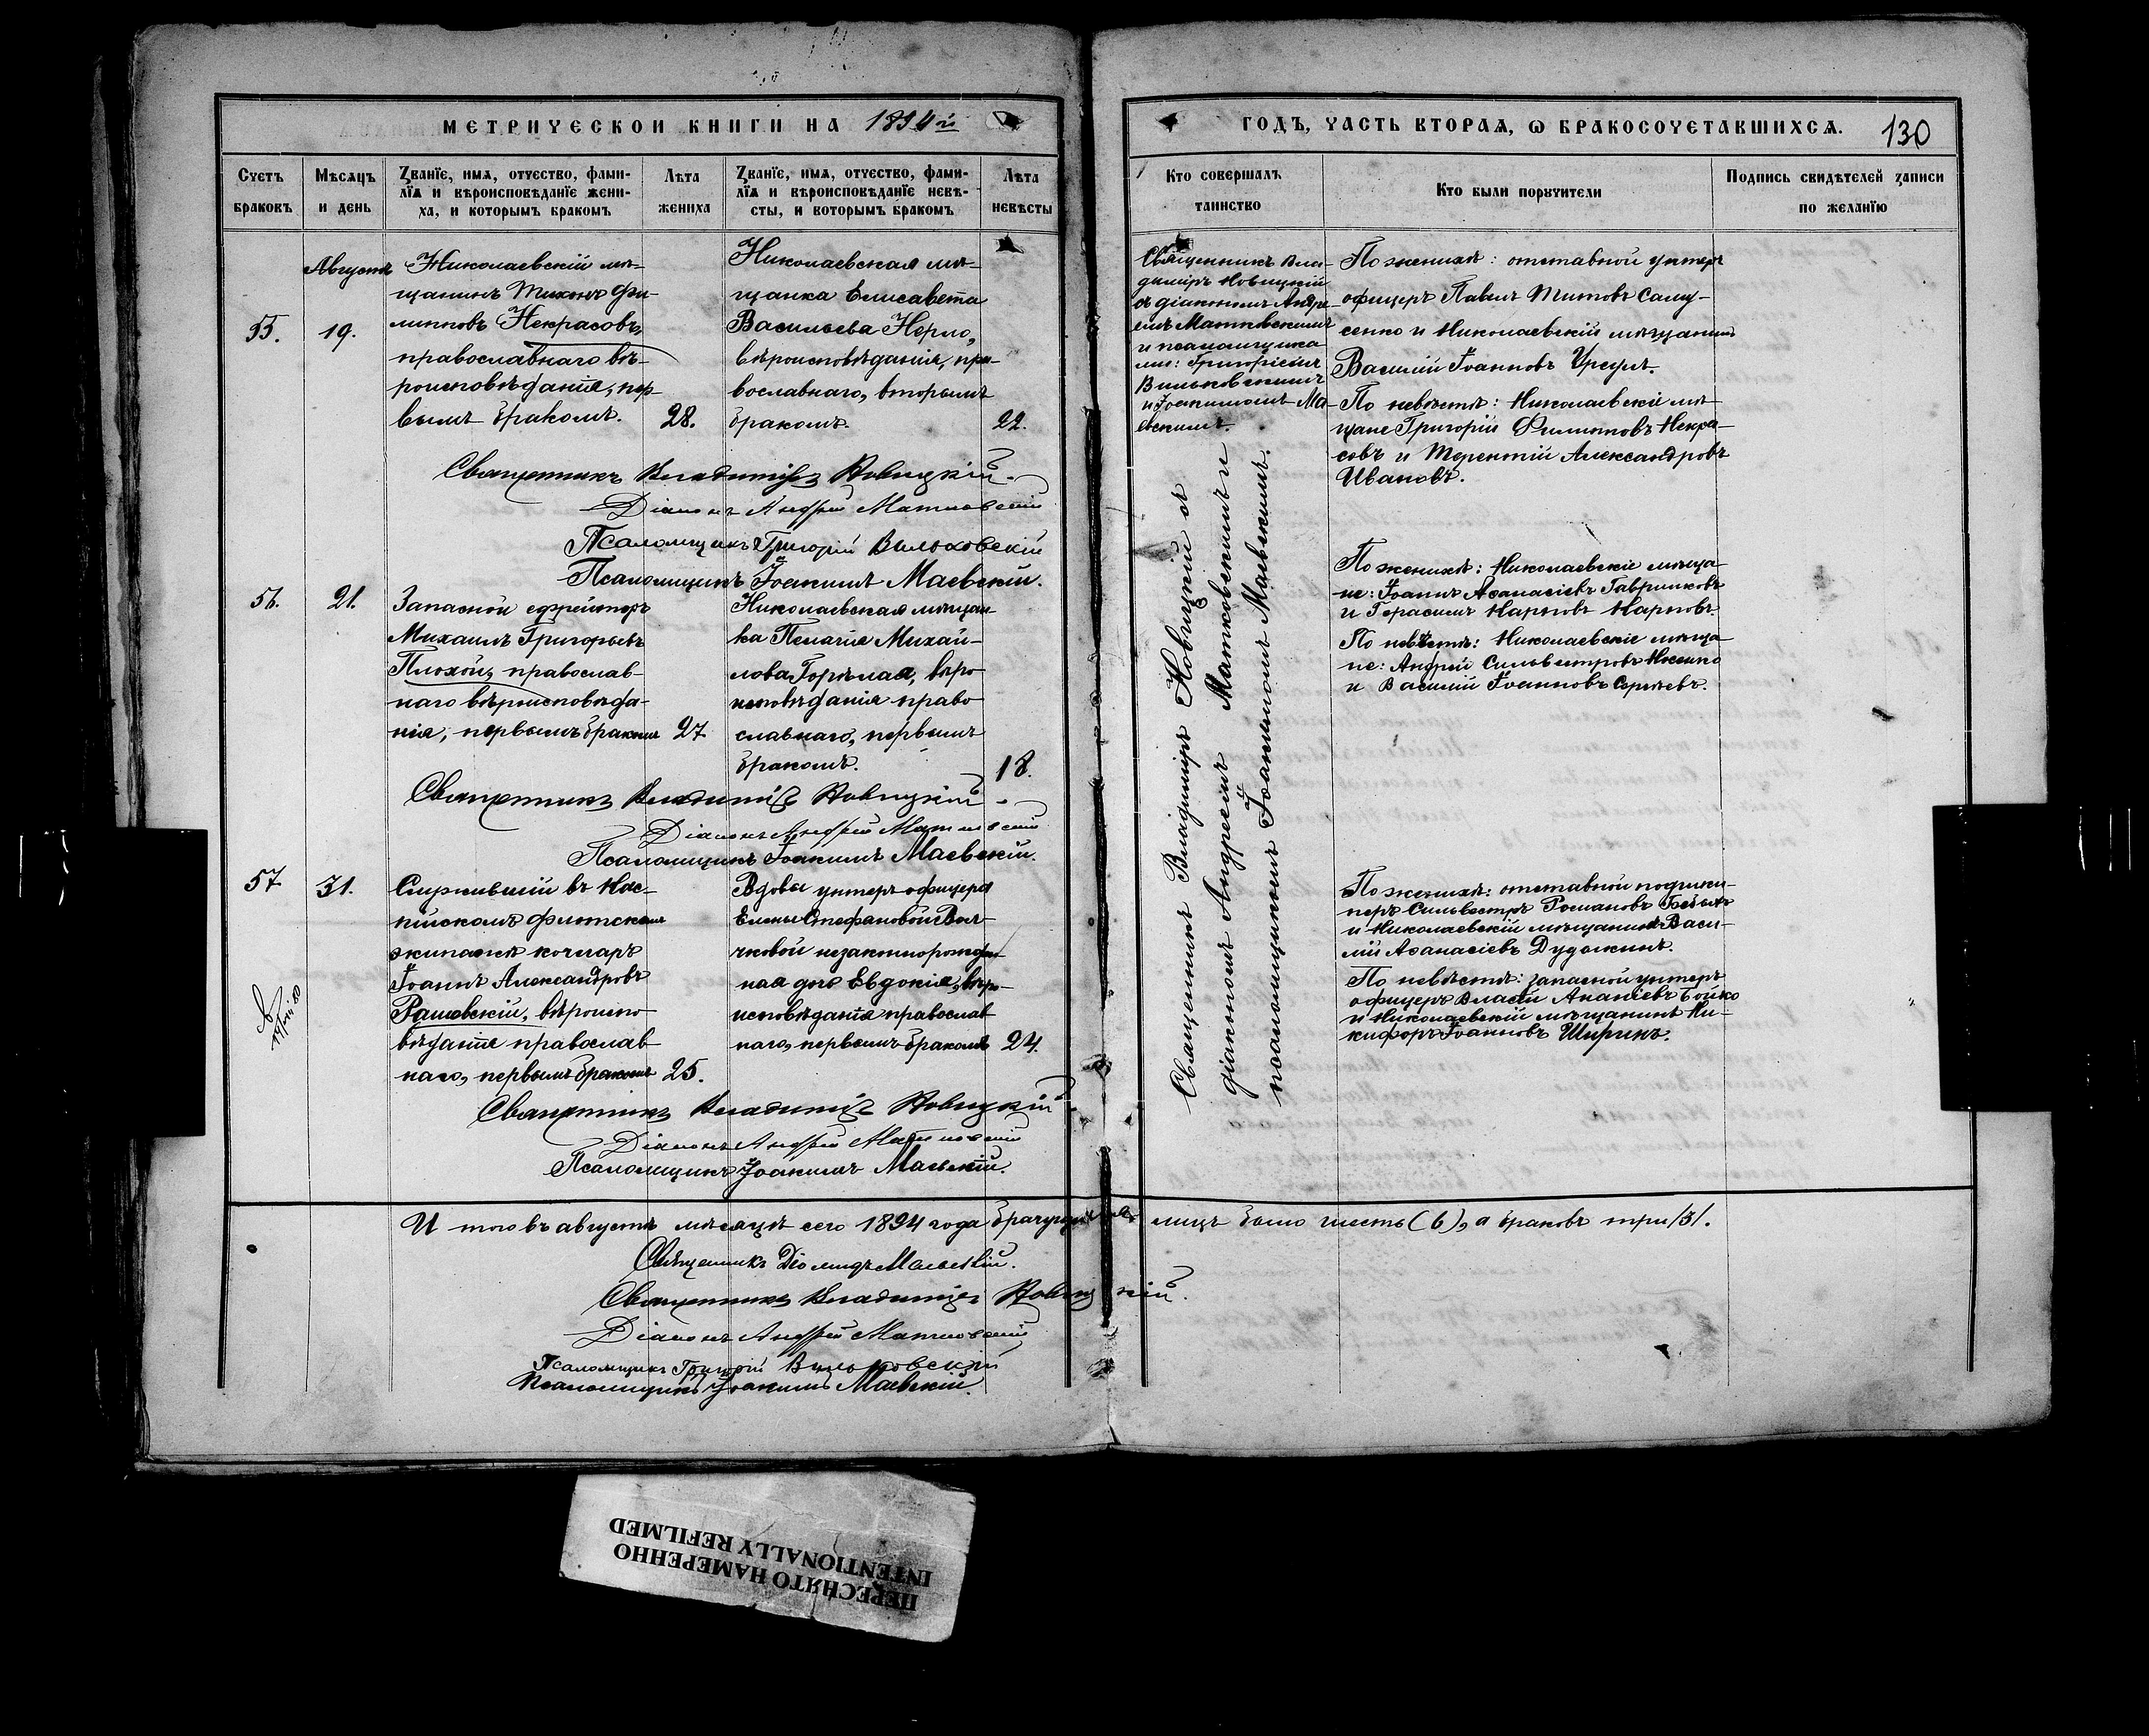 МЕТРИЧЕСКОЙ КНИГИ НА 1894й
ГОДЪ, ЧАСТЬ ВТОРАЯ, Ѡ БРАКОСОЧЕТАВШИХСЯ. 130
Счетъ браковъ
Мѣсяцъ и день
Званїе, имя, отчество, фами-
лїя и вѣроисповѣданїе жени-
ха, и которымъ бракомъ
Лѣта жениха
Званїе, имя, отчество, фами-
лїя и вѣроисповѣданїе невѣ-
сты, и которымъ бракомъ
Лѣта невѣсты
Кто совершалъ таинство
Кто были поручители
Подпись свидѣтелей записи по желанїю
55.
Августъ
19.
Николаевскій мѣ-
щанинъ Тихонъ Фи-
липповъ Некрасовъ,
православнаго вѣ-
роисповѣданія, пер-
вымъ бракомъ.
28.
Николаевская мѣ-
щанка Елисавета
Васильева Нерло,
вѣроисповѣданія, пра-
вославнаго, вторымъ
бракомъ.
22.
Священникъ Вла-
диміръ Новицкій
съ діакономъ Андре-
емъ Матковскимъ
и псаломщика-
ми: Григоріемъ
Вильковскимъ
и Іоакимомъ Ма-
евскимъ.
По женихѣ: отставной унтеръ
офицеръ Павелъ Титовъ Саму-
сенко и Николаевскій мѣщанинъ
Василій Іоанновъ
По невѣстѣ: Николаевскіе мѣ-
щане Григорій Филипповъ Некра-
совъ и Терентій Александровъ
Ивановъ.
Священникъ Владиміръ Новицкій.
Діаконъ Андрей Матковскій
Псаломщикъ Григорій Вильковскій
Псаломщикъ Іоакимъ Маевскій.
56.
21.
Запасной ефрейторъ
Михаилъ Григорьевъ
Плохой, православ-
наго вѣроисповѣда-
нія, первымъ бракомъ
27
Николаевская мѣщан-
ка Пелагія Михай-
лова Горѣлая, вѣро
исповѣданія право
славнаго, первымъ
бракомъ.
18.
Священникъ Владиміръ Новицкій съ
діакономъ Андреемъ Матковскимъ и
псаломщикомъ Іоакимомъ Маевскимъ.
По женихѣ: Николаевскіе мѣща-
не: Іоаннъ Аѳанасіевъ Гавриковъ
и Герасимъ Карповъ Карповъ.
По невѣстѣ: Николаевскіе мѣща-
не: Андрей Сильвестровъ
и Василій Іоанновъ Сергѣевъ.
Священникъ Владиміръ Новицкій
Діаконъ Андрей Матковскій
Псаломщикъ Іоакимъ Маевскій.
57
31.
Служившій въ Кас-
пійскомъ флотскомъ
экипажѣ кочегаръ
Іоаннъ Александровъ
Рашевскій, вѣроиспо-
вѣданія православ-
наго, первымъ бракомъ
25.
Вдовы унтеръ офицера
Елены Стефановой Вол-
чковой незаконнорожден-
ная дочь Евдокія, вѣро-
исповѣданія православ-
наго, первымъ бракомъ
24.
По женихѣ: отставной подшки-
перъ Сильвестръ Романовъ
и Николаевскій мѣщанинъ Васи-
лій Аѳанасіевъ Дудокинъ.
По невѣстѣ: запасной унтеръ
офицеръ Власій Ананіевъ Бойко
и Николаевскій мѣщанинъ Ни-
кифоръ Іоанновъ Ширинъ.
Священникъ Владиміръ Новицкій
Діаконъ Андрей Матковскій
Псаломщикъ Іоакимъ Маевскій.
Итого въ августѣ мѣсяцѣ сего 1894 года брачущихся лицъ было шесть (6), а браковъ три /3/.
Священникъ Діомидъ Маевскій.
Священникъ Владиміръ Новицкій.
Діаконъ Андрей Матковскій
Псаломщикъ Григорій Вильковскій
Псаломщикъ Іоакимъ Маевскій.
ПЕРЕСНЯТО НАМЕРЕННО
INTENTIONALLY REFILMED